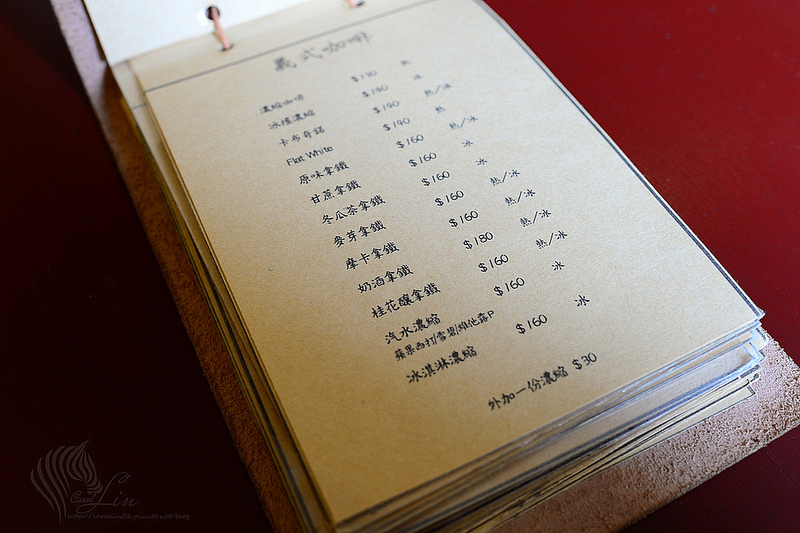 義式咖啡
濃縮咖啡 $130 熱
冰搖濃縮 $140 冰
卡布奇諾 $140 熱/冰
Flat White $140 熱
原味拿鐵 $160 熱/冰
甘蔗拿鐵 $160 冰
冬瓜茶拿鐵 $160 冰
麥芽拿鐵 $160 熱/冰
摩卡拿鐵 $160 熱/冰
奶酒拿鐵 $180 熱/冰
桂花釀拿鐵 $160 熱/冰
汽水濃縮 $160 冰
蘋果西打/雪碧/維他露P
冰淇淋濃縮 $160 冰
外加一份濃縮 $30
Carol Lin